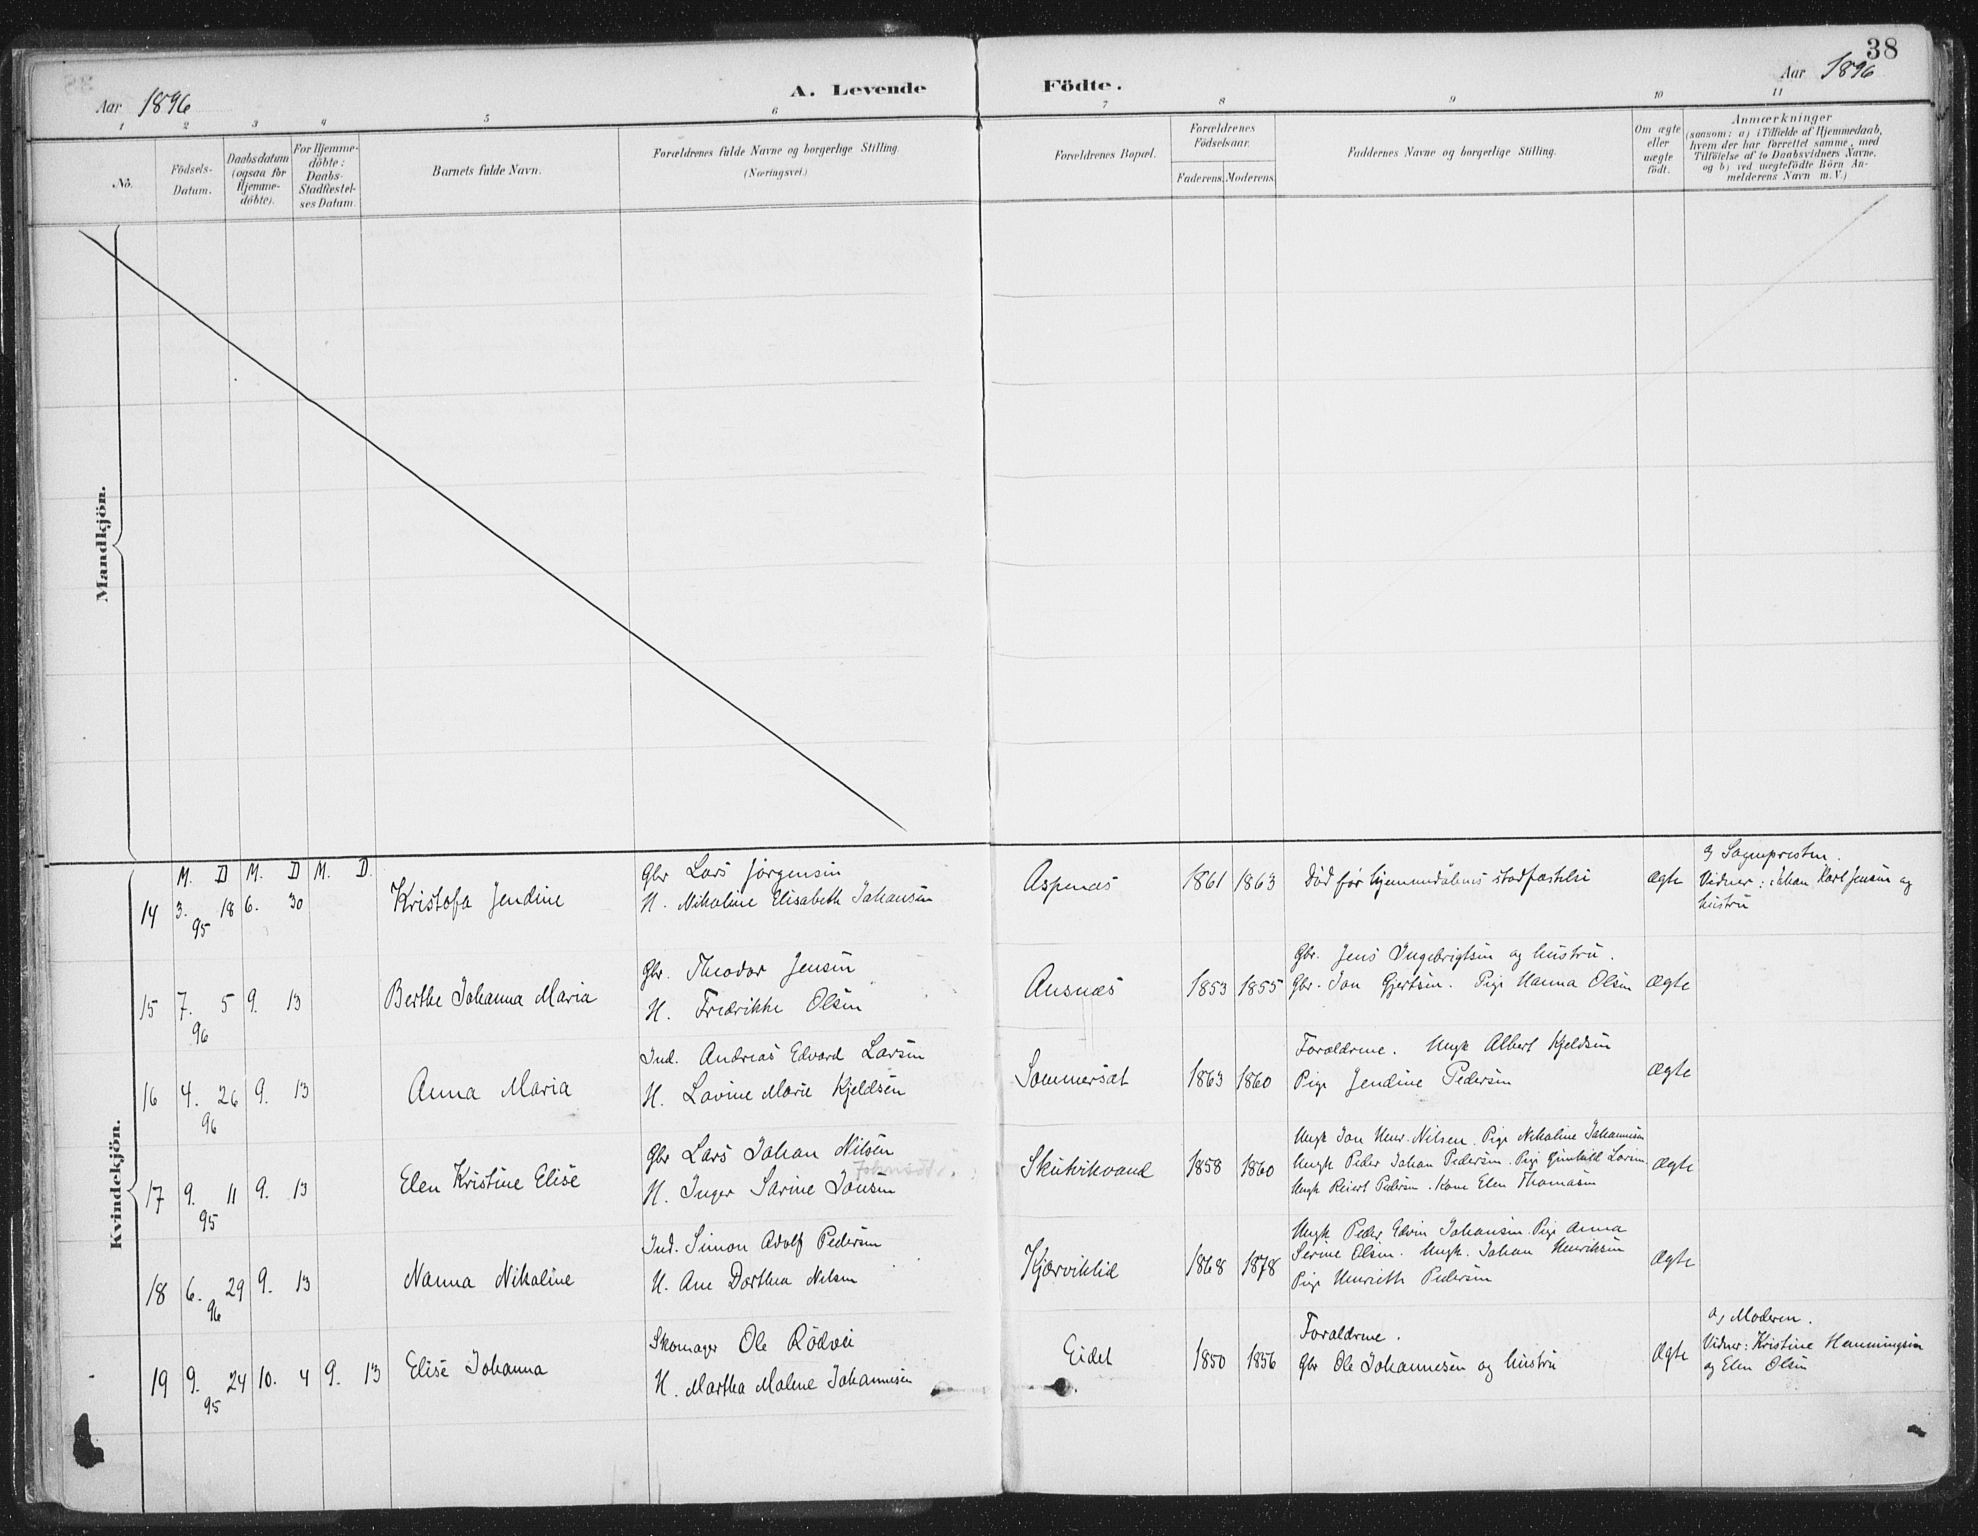 38
Aar 1896
A. Levende
Födte.
Aar 1896
1 2 3 4 5 6 7 8 9 10 11
No.
Födsels-
Datum.
Daabsdatum
(ogsaa for
Hjemme-
döbte).
For Hjemme-
döbte:
Daabs-
Stadfæstel-
ses Datum.
Barnets fulde Navn.
Forældrenes fulde Navne og borgerlige Stilling.
(Næringsvei.)
Forældrenes Bopæl.
Forældrenes
Födselsaar.
Faderens. Moderens.
Faddernes Navne og borgerlige Stilling.
Om ægte
eller
uægte
födt.
Anmærkninger
(saasom: a) i Tilfælde af Hjemmedaab,
hvem der har forrettet samme, med
Tilföielse af to Daabsvidners Navne,
og b) ved uægtefödte Börn An-
melderens Navn m. V.)
Mandkjön.
Kvindekjön.
M. D M. D M. D.
14 3. 18 6. 30
95
Kristofa Jendine
Gbr Lars Jörgensen
H. Nikoline Elisabeth Johansen
Aspenæs
1861 1863
Död för hjemmedåbens stadfæstelse
ægte
a) Sognepresten.
Vidner: Johan Karl Jensen og
hustru
15 7. 5 9. 13
96
Berthe Johanna Maria
Gbr. Theodor Jensen
H. Fredrikke Olsen
Ansnæs
1853 1855
Gbr. Jens Ingebrigtsen og hustru.
Gbr. Jon Gjertsen. Pige Hanna Olsen
Ægte
16 4. 26 9. 13
96
Anna Maria
Ind. Andreas Edvard Larsen
H. Lovine Marie Kjeldsen
Sommersæt
1863 1860
Forældrene. Ungk Albert Kjeldsen
Pige Jendine Pedersen
Ægte
17 9. 11 9. 13
95
Elen Kristine Elise
Gbr Lars Johan Nilsen
H. Inger Sarine Jonsen
Skutvikvand
1858 1860
Ungk Jon Henr. Nilsen. Pige Nikoline Johannesen
Ungk Peder Johan Pedersen. Pige Gunhild Larsen
Ungk Reiert Pedersen. Kone Elen Thomasen
Ægte
18 6. 29 9. 13
96
Nanna Nikoline
Ind. Simon Adolf Pedersen
H. Ane Dorthea Nilsen
Kjærviklid
1868 1878
Ungk Peder Edvin Johansen. Pige Anna
Serine Olsen. Ungk. Johan Henriksen
Pige Henriette Pedersen
Ægte
19 9. 24 10. 4 9. 13
95
Elise Johanna
Skomager Ole Rödvei
H. Martha Malene Johannesen
Eidet
1850 1856
Forældrene.
Gbr Ole Johannesen og hustru
Ægte
a) Moderen.
Vidner: Kristine Henningsen
og Elen Olsen